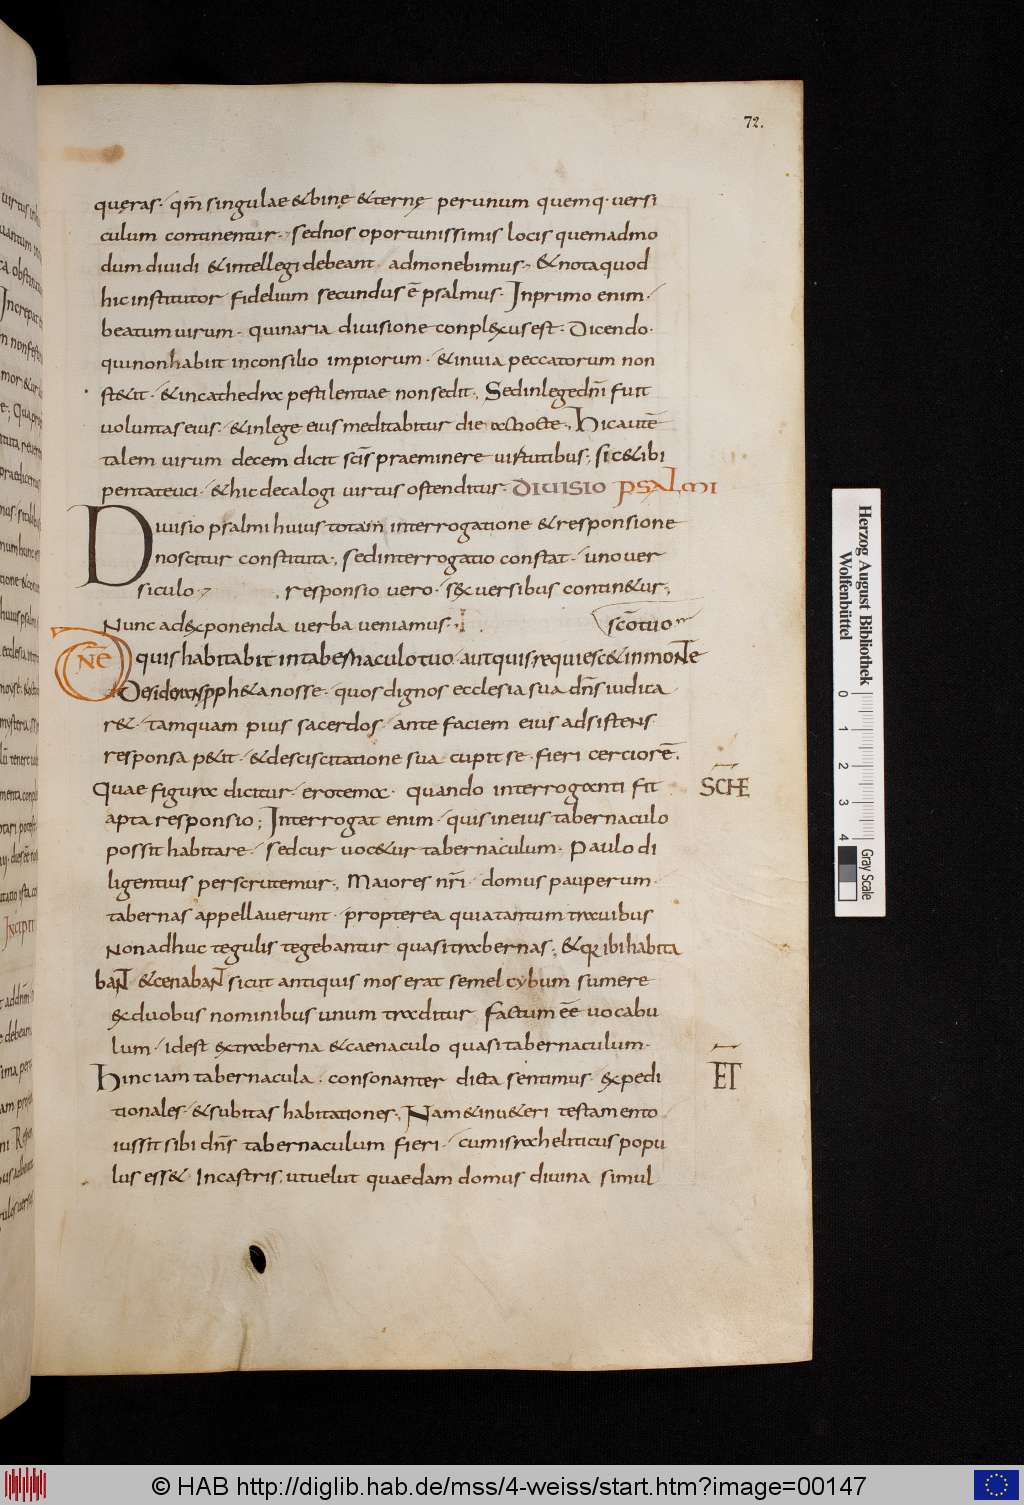 72.
quęras · qm̄ singulae & binę & ternę per unum quemq· versi
culum continentur · sed nos oportunissimis locis quemadmo
dum dividi & intellegi debeant · admonebimus · & nota quod
hic institutor fidelium secundus ē psalmus · In primo enim ·
beatum virum · quinaria divisione conplexus est · Dicendo ·
qui non habiit in consilio impiorum · & in via peccatorum non
st&it · & in cathedra pestilentiae non sedit · Sed in lege dn̄i fuit
voluntas eius · & in lege eius meditabitur die ac nocte · Hic autē
talem virum decem dicit sc̄is praeminere virtutibus ; sic & ibi
pentateuci · & hic decalogi virtus ostenditur · DIVISIO PSALMI
Divisio psalmi huius tota in interrogatione & responsione
noscitur constituta · sed interrogatio constat · uno ver
siculo · responsio vero · sex versibus contin&ur ;
Nunc ad exponenda verba veniamus · sc̄o tuo
DN̄E quis habitabit in tabernaculo tuo · aut quis requiesc& in monte
Desiderans pph&a nosse · quos dignos ecclesia sua dn̄s iudica
r& · tamquam pius sacerdos · ante faciem eius adsistens
responsa p&it · & desciscitatione sua cupit se fieri cerciorē .
Quae figura dicitur · erotema · quando interroganti fit
SCHE
apta responsio ; Interrogat enim · quis in eius tabernaculo
possit habitare · sed cur voc&ur tabernaculum · Paulo di
ligentius perscrutemur · Maiores nr̄i · domus pauperum ·
tabernas appellaverunt · propterea quia tantum travibus
Non adhuc tegulis tegebantur quasi trabernas ; & qr ibi habita
bant & cenabant sicut antiquis mos erat semel cybum sumere
ex duobus nominibus unum traditur factum eē vocabu
lum · id est extraberna & caenaculo quasi tabernaculum ·
Hinc iam tabernacula · consonanter dicta sentimus · expedi
ET
tionales · & subitas habitationes · Nam & in v&eri testamento
iussit sibi dn̄s tabernaculum fieri · cum israheliticus popu
lus ess& · In castris , ut velut quaedam domus divina simul
Herzog August Bibliothek
Wolfenbüttel
0 1 2 3 4
Gray Scale
© HAB http://diglib.hab.de/mss/4-weiss/start.htm?image=00147